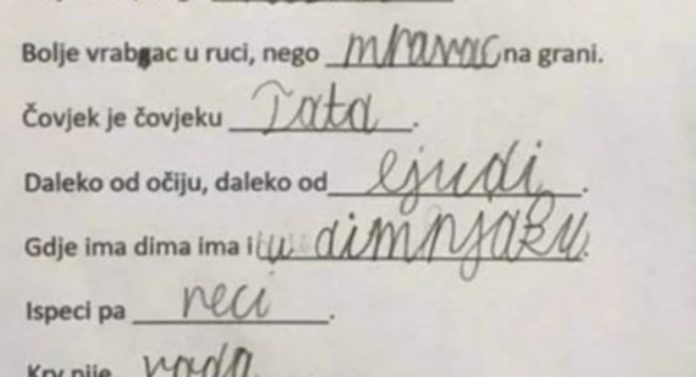 Bolje vrabac u ruci, nego mravac na grani.
Čovjek je čovjeku Tata.
Daleko od očiju, daleko od ljudi.
Gdje ima dima ima i u dimnjaku.
Ispeci pa reci.
Krv nije voda